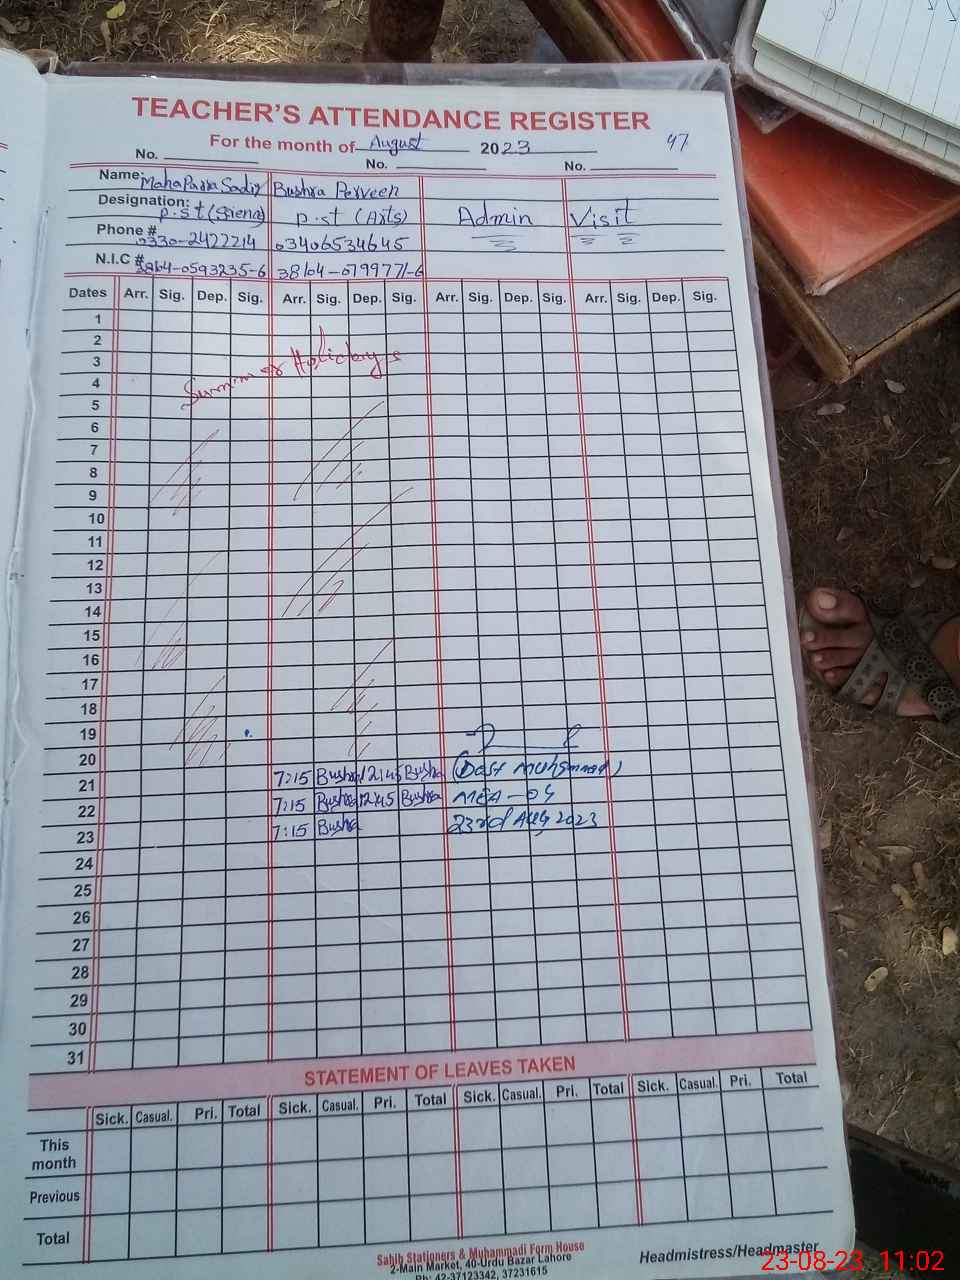 TEACHER'S ATTENDANCE REGISTER
For the month of August 2023
47
No. No. No.
Name: MahaParra Sadiq Bushra Perveen
Designation: P.st (Science) p.st (Arts) Admin Visit
Phone # 0330-2422214 03406534645
N.I.C # 3864-0593235-6 38104-0799771-6
Dates Arr. Sig. Dep. Sig. Arr. Sig. Dep. Sig. Arr. Sig. Dep. Sig. Arr. Sig. Dep. Sig.
1
2
3
Summer Holidays
4
5
6
7
8
9
10
11
12
13
14
15
16
17
18
19
20
21 7:15 Bushra 12:45 Bushra (Dost Muhammad)
22 7:15 Bushra 12:45 Bushra MEA-04
23 7:15 Bushra 23rd Aug 2023
24
25
26
27
28
29
30
31
STATEMENT OF LEAVES TAKEN
Sick. Casual. Pri. Total Sick. Casual. Pri. Total Sick. Casual. Pri. Total Sick. Casual. Pri. Total
This month
Previous
Total
Sabih Stationers & Muhammadi Form House
2-Main Market, 40-Urdu Bazar Lahore
Ph: 42-37123342, 37231615
Headmistress/Headmaster
23-08-23 11:02